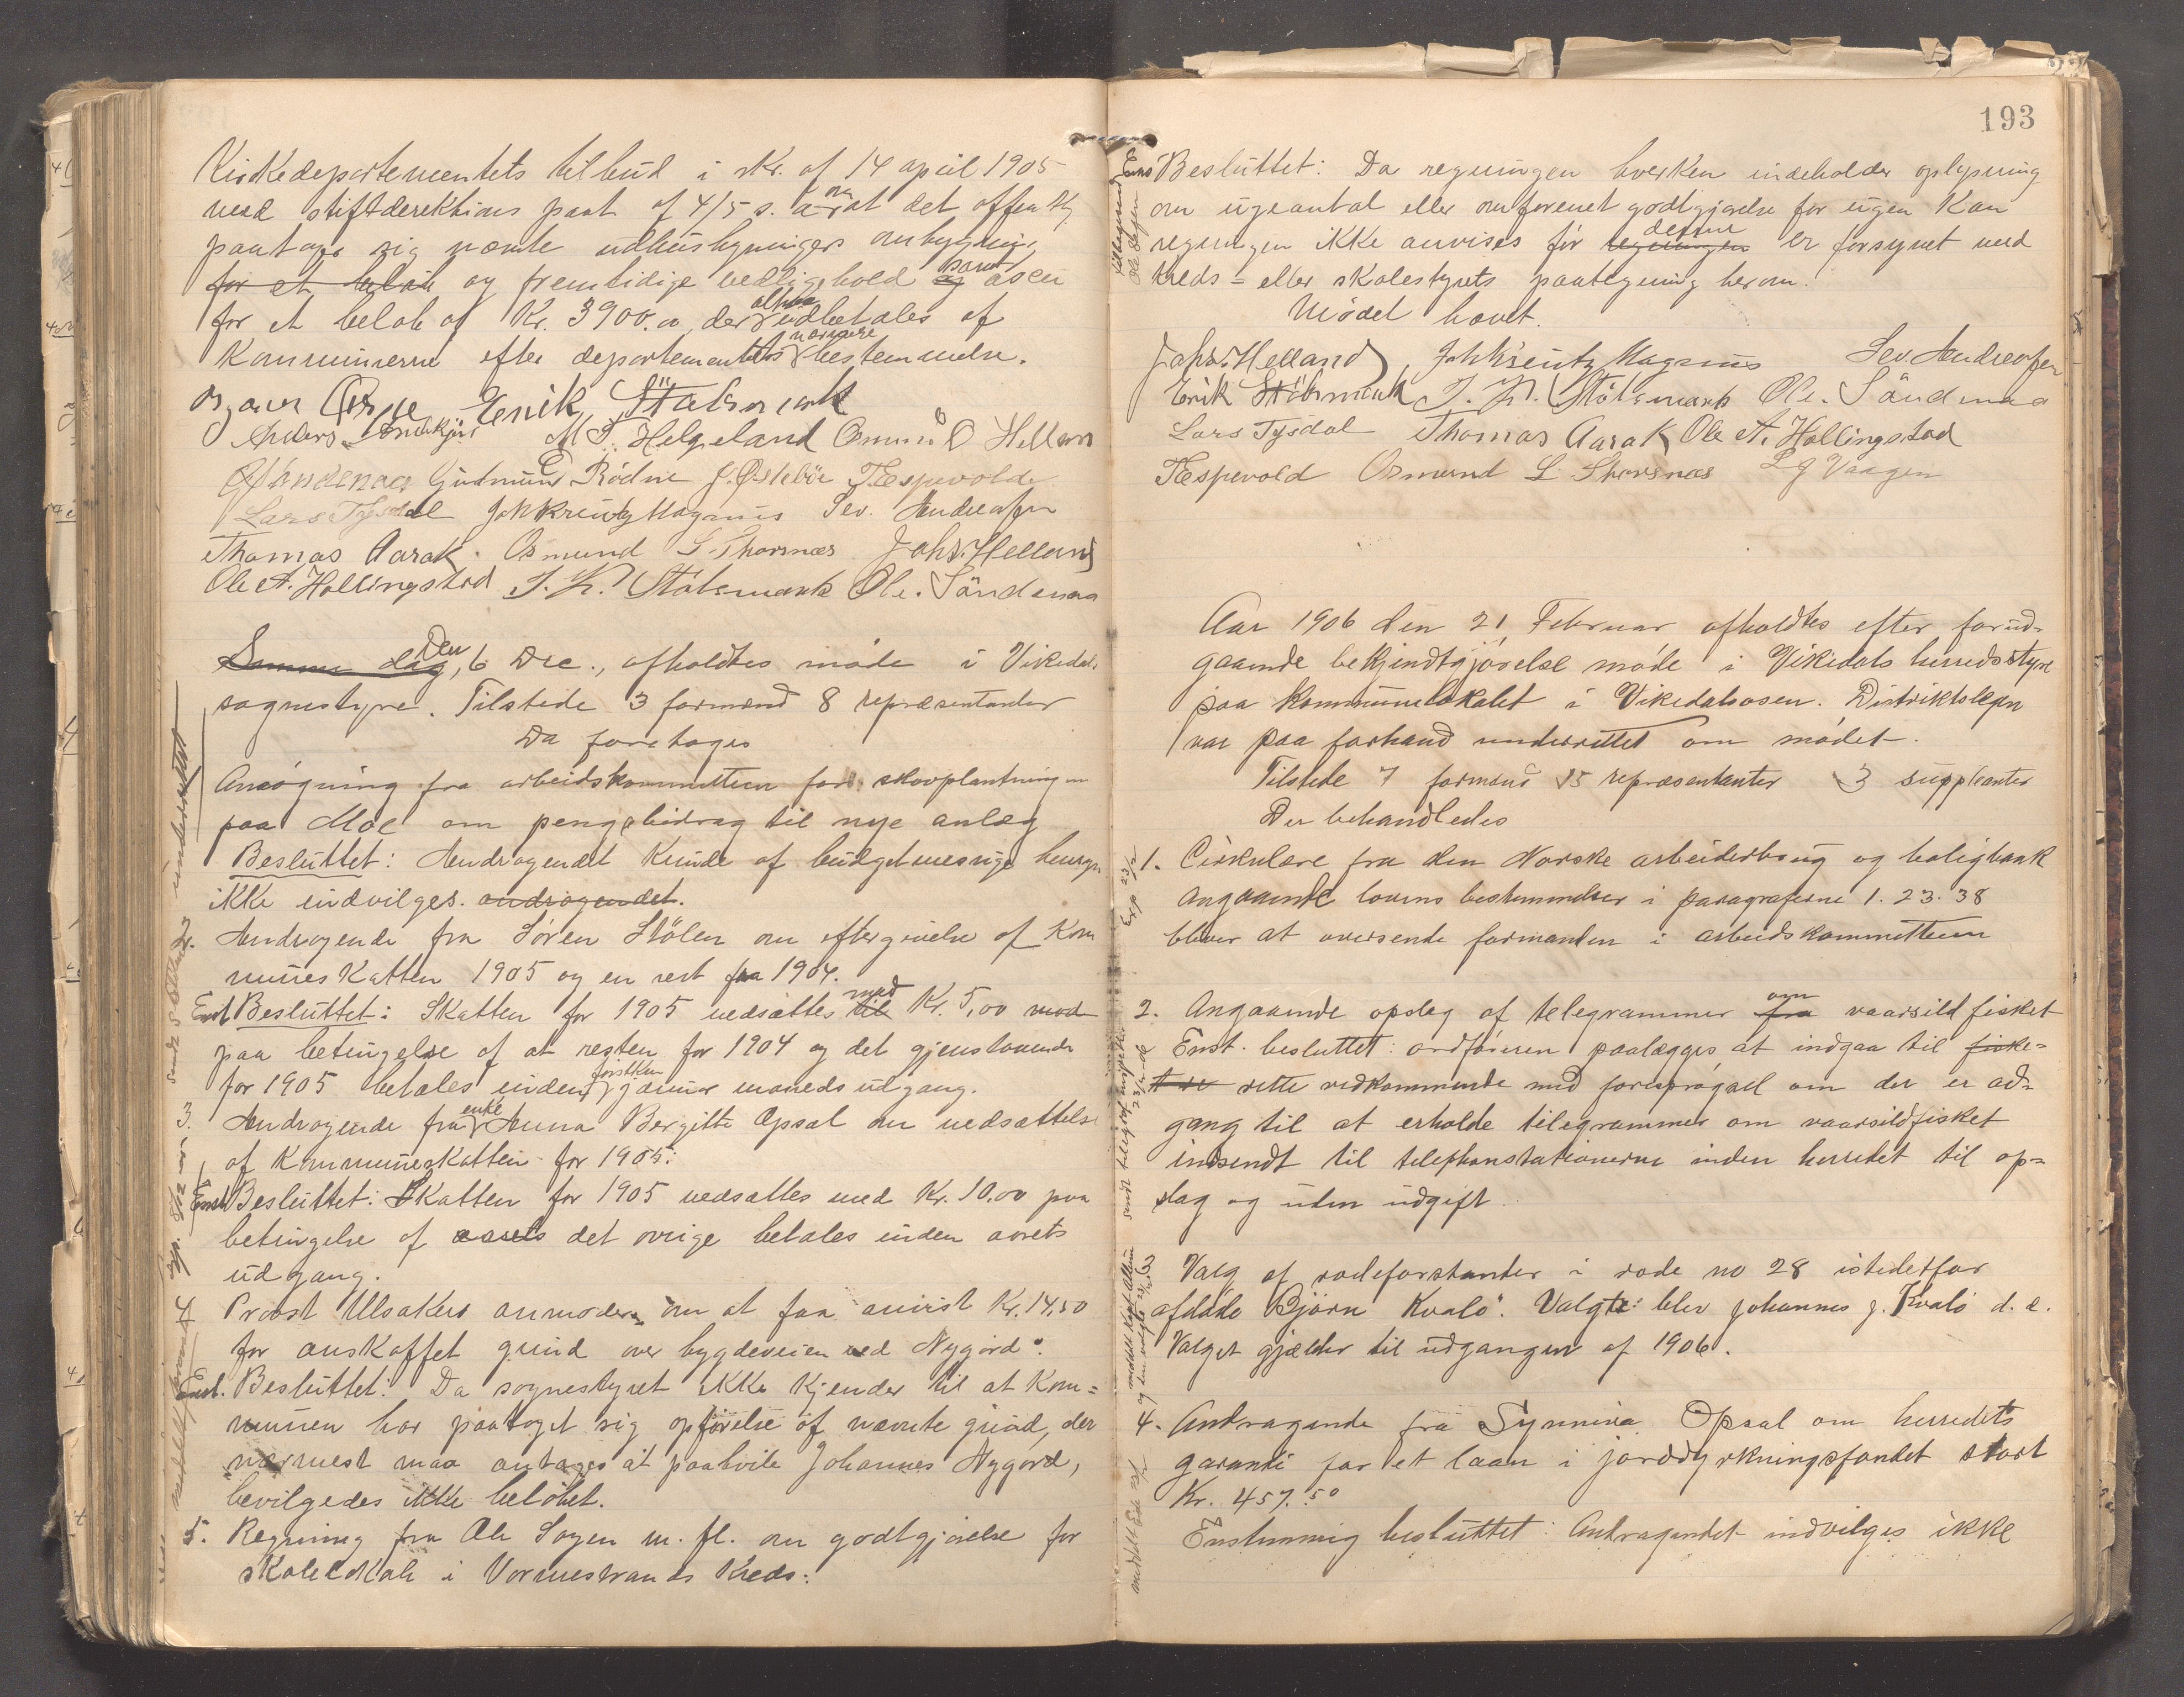 Kirkedepartementets tilbud i skr. af 14 april 1905
med stiftderektions paat af 4/5 s. a. om at det offentlig
paatage sig nævnte udhusbygningers ombygning
for et beløb og fremtidige vedligehold samt ascu
for et beløb af Kr. 3900.00, der udbetales af
Kommunerne efter departementets nærmere bestemmelse.
Erik Stølsmark
Anders M. T. Helgeland Osmund Helland
Gudmund Rødne J. Østebø T. Espevold
Lars Tysdal Joh Kreutz Magnus Sev. Andreasen
Thomas Aarak. Osmund L. Thorsnæs Johs. Helland
Ole A. Hallingstad T. K. Stølsmark Ole. Sändenaa
Samme dag, Den 6 Dec., afholdtes møde i Vikedals
sognestyre. Tilstede 3 formænd 8 repræsentanter
Da foretoges
Ansøgning fra arbeidskommitteen for skovplantningen
paa Moe om pengebidrag til nye anlæg
Besluttet: Andragendet kunde af budgetmessige hensyn
ikke indvilges. andragendet.
2. Andragende fra Søren Stølen om eftergivelse af Kom
muneskatten 1905 og en rest fra 1904.
Enst Besluttet: Skatten for 1905 nedsættes til med Kr. 5,00 mod
paa betingelse af at resten for 1904 og det gjenstaaende
for 1905 betales inden førstkom januar maaneds udgang.
3. Andragende fra enke Anna Bergitte Opsal om nedsættelse
af Kommuneskatten for 1905:
Enst Besluttet: Skatten for 1905 nedsættes med Kr. 10.00 paa
betingelse af aarets det øvrige betales inden aarets
udgang.
4 Provst Ulsakers anmoder om at faa anvist Kr. 14,50
for anskaffet grind over bygdeveien ved Nygård.
Enst. Besluttet: Da sognestyret ikke kjender til at Kom=
munen har paataget sig opførelse af nævnte grind, der
nærmest maa antages at paahvile Johannes Nygård,
bevilgedes ikke beløbet.
5. Regning fra Ole Søgen m. fl. om godtgjørelse for
skolelokale i Vormestrands Kreds:
193
Enst Besluttet: Da regningen hverken indeholder oplysning
om ugeantal eller omforenet godtgjørelse for ugen kan
regningen ikke anvises før regningen denne er forsynet med
kreds- eller skolestyrets paategning herom.
Mødet hævet.
Johs. Helland, Joh Kreutz Magnus Sev. Andreasen
Erik Stølsmark T. K. Stølsmark Ole. Sändenaa
Lars Tysdal Thomas Aarak Ole A. Hallingstad
T Espevold Osmund L. Thorsnæs L G Vaagen
Aar 1906 den 21 Februar afholdtes efter forud-
gaaende bekjendtgjørelse møde i Vikedals herredsstyre
paa kommunelokalet i Vikedalsosen. Distriktslegen
var paa forhand underrettet om mødet.
Tilstede 7 formænd 15 repræsentanter 3 suppleanter
Der behandledes
1. Cirkulære fra den Norske arbeiderbrug og boligbank
angaaende lovens bestemmelser i paragraferne 1. 23. 38
blever at oversende formanden i arbeidskommitteen
2. Angaaende opslag af telegrammer fra om vaarsildfisket
Enst. besluttet: ordføreren paalægges at indgaa til fiske-
rette vedkommende med forespørgsel om der er ad-
gang til at erholde telegrammer om vaarsildfisket
indsendt til telephonstationerne inden herredet til op=
slag og uden udgift.
3 Valg af rodeforstander i rode no 28 istedetfor
afdøde Bjørn Kvalø. Valgt blev Johannes J. Kvalø d. e.
Valget gjælder til udgangen af 1906.
4. Andragende fra Synniva Opsal om herredets
garanti for et laan i jorddyrkningsfondet stort
Kr. 457.50
Enstemmig besluttet: Andragendet indvilges ikke